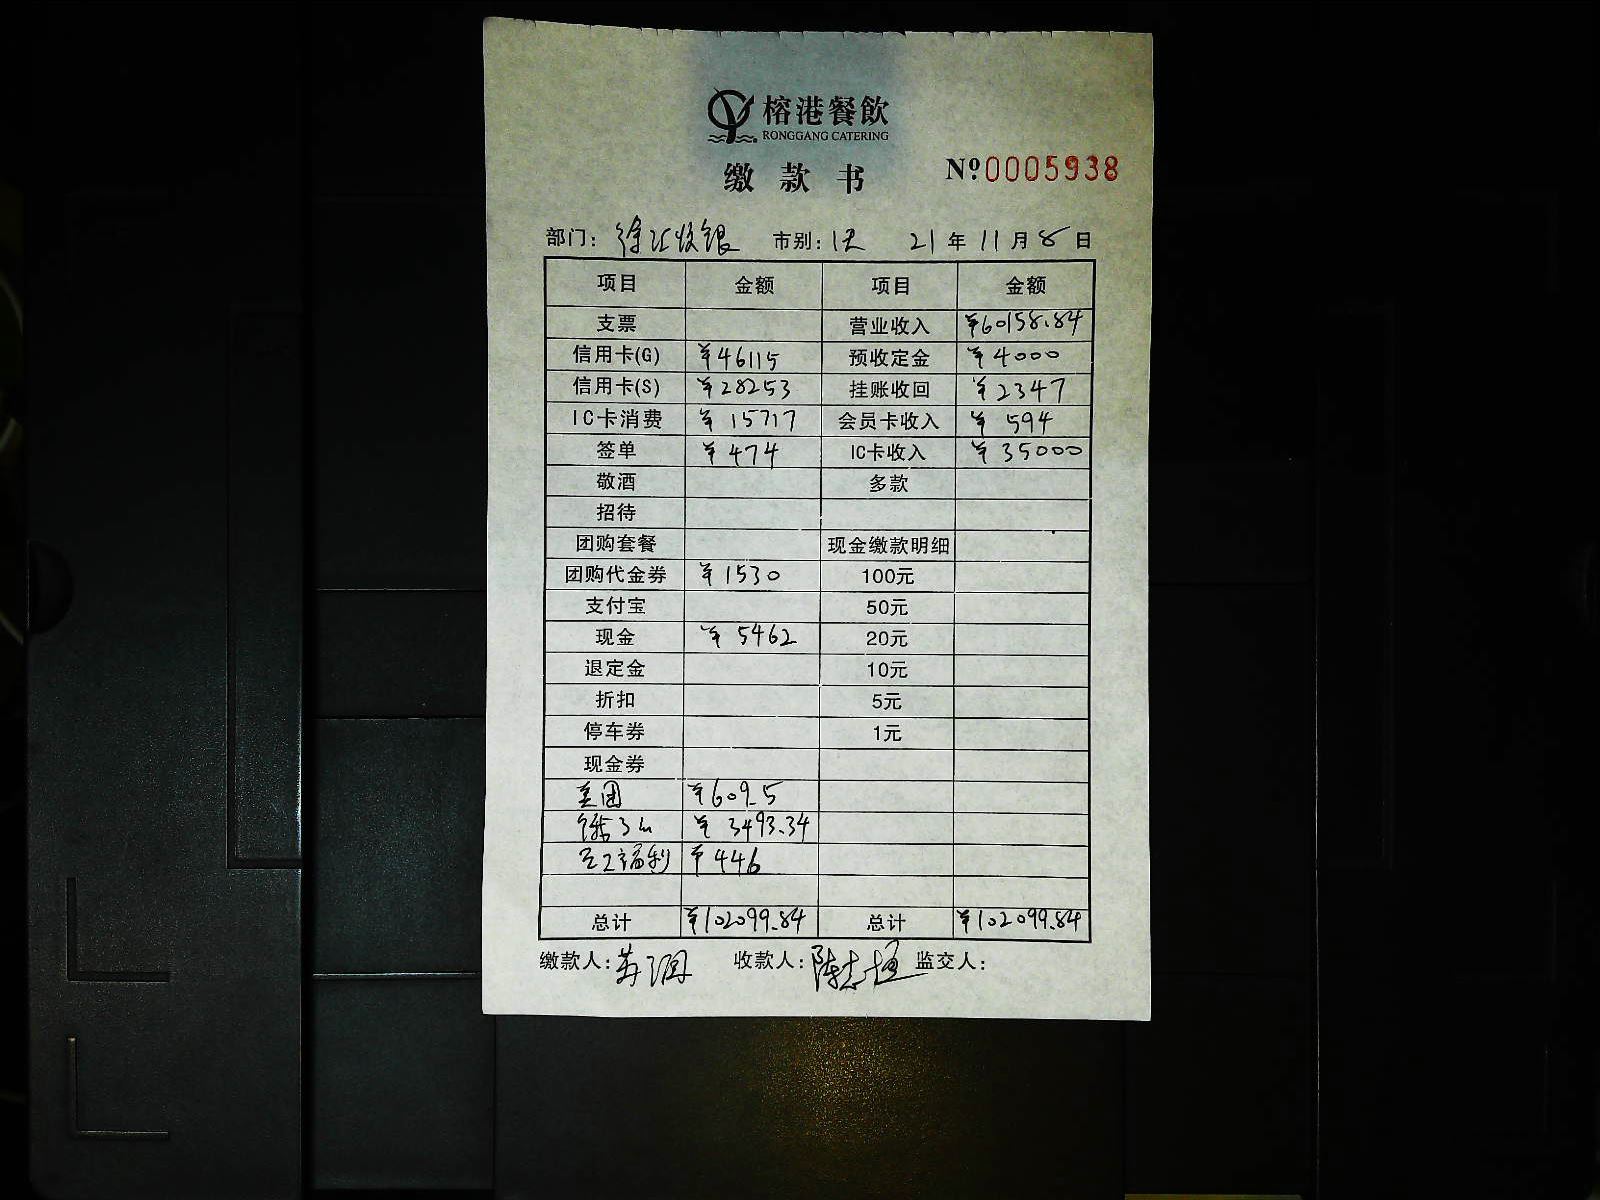 榕港餐飲
RONGGANG CATERING
缴款书 Nº0005938
部门: 徐汇收银 市别: 1天 21年11月8日
项目 金额 项目 金额
支票 营业收入 ¥60158.84
信用卡(G) ¥46115 预收定金 ¥4000
信用卡(S) ¥28253 挂账收回 ¥2347
IC卡消费 ¥15717 会员卡收入 ¥594
签单 ¥474 IC卡收入 ¥35000
敬酒 多款
招待
团购套餐 现金缴款明细
团购代金券 ¥1530 100元
支付宝 50元
现金 ¥5462 20元
退定金 10元
折扣 5元
停车券 1元
现金券
美团 ¥609.5
饿了么 ¥3493.34
员工福利 ¥446
总计 ¥102099.84 总计 ¥102099.84
缴款人: 收款人: 陈志恒 监交人: